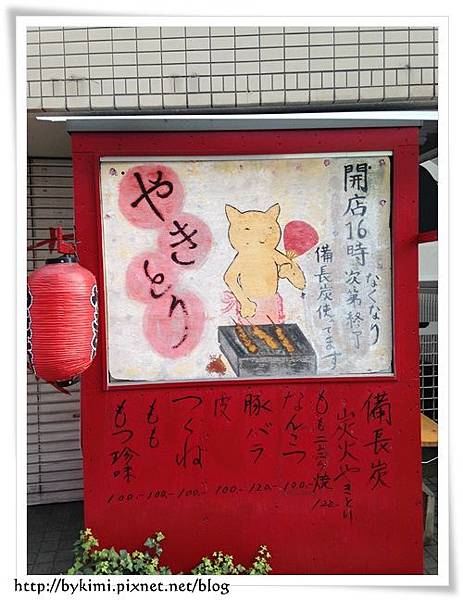 やきとり
開店16時
なくなり
次第終了
備長炭使ってます
備長炭
炭火やきとり
なんこつ
豚バラ
皮
つくね
もも
もつ珍味
100.-
100.-
100.-
100.-
120.-
100.-
122.-
http://bykimi.pixnet.net/blog